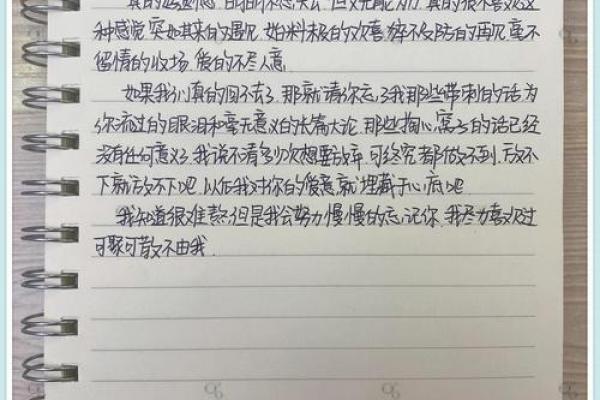 种感觉突如其来的遇见,始料未及的欢喜,猝不及防的再见,毫不
留情的收场,爱的不尽人意
如果我们真的回不去了,那就请你忘了我那些带刺的话,为
你流过的眼泪和毫无意义的长篇大论,那些掏心窝子的话已经
没有任何意义了,我说不清多少次想要放弃,可终究都做不到,放不
下就放不下吧,以后我对你的爱意就埋藏于心底吧
我知道很难熬,但是我会努力慢慢的忘记你,我尽力喜欢过
可聚可散不由我.